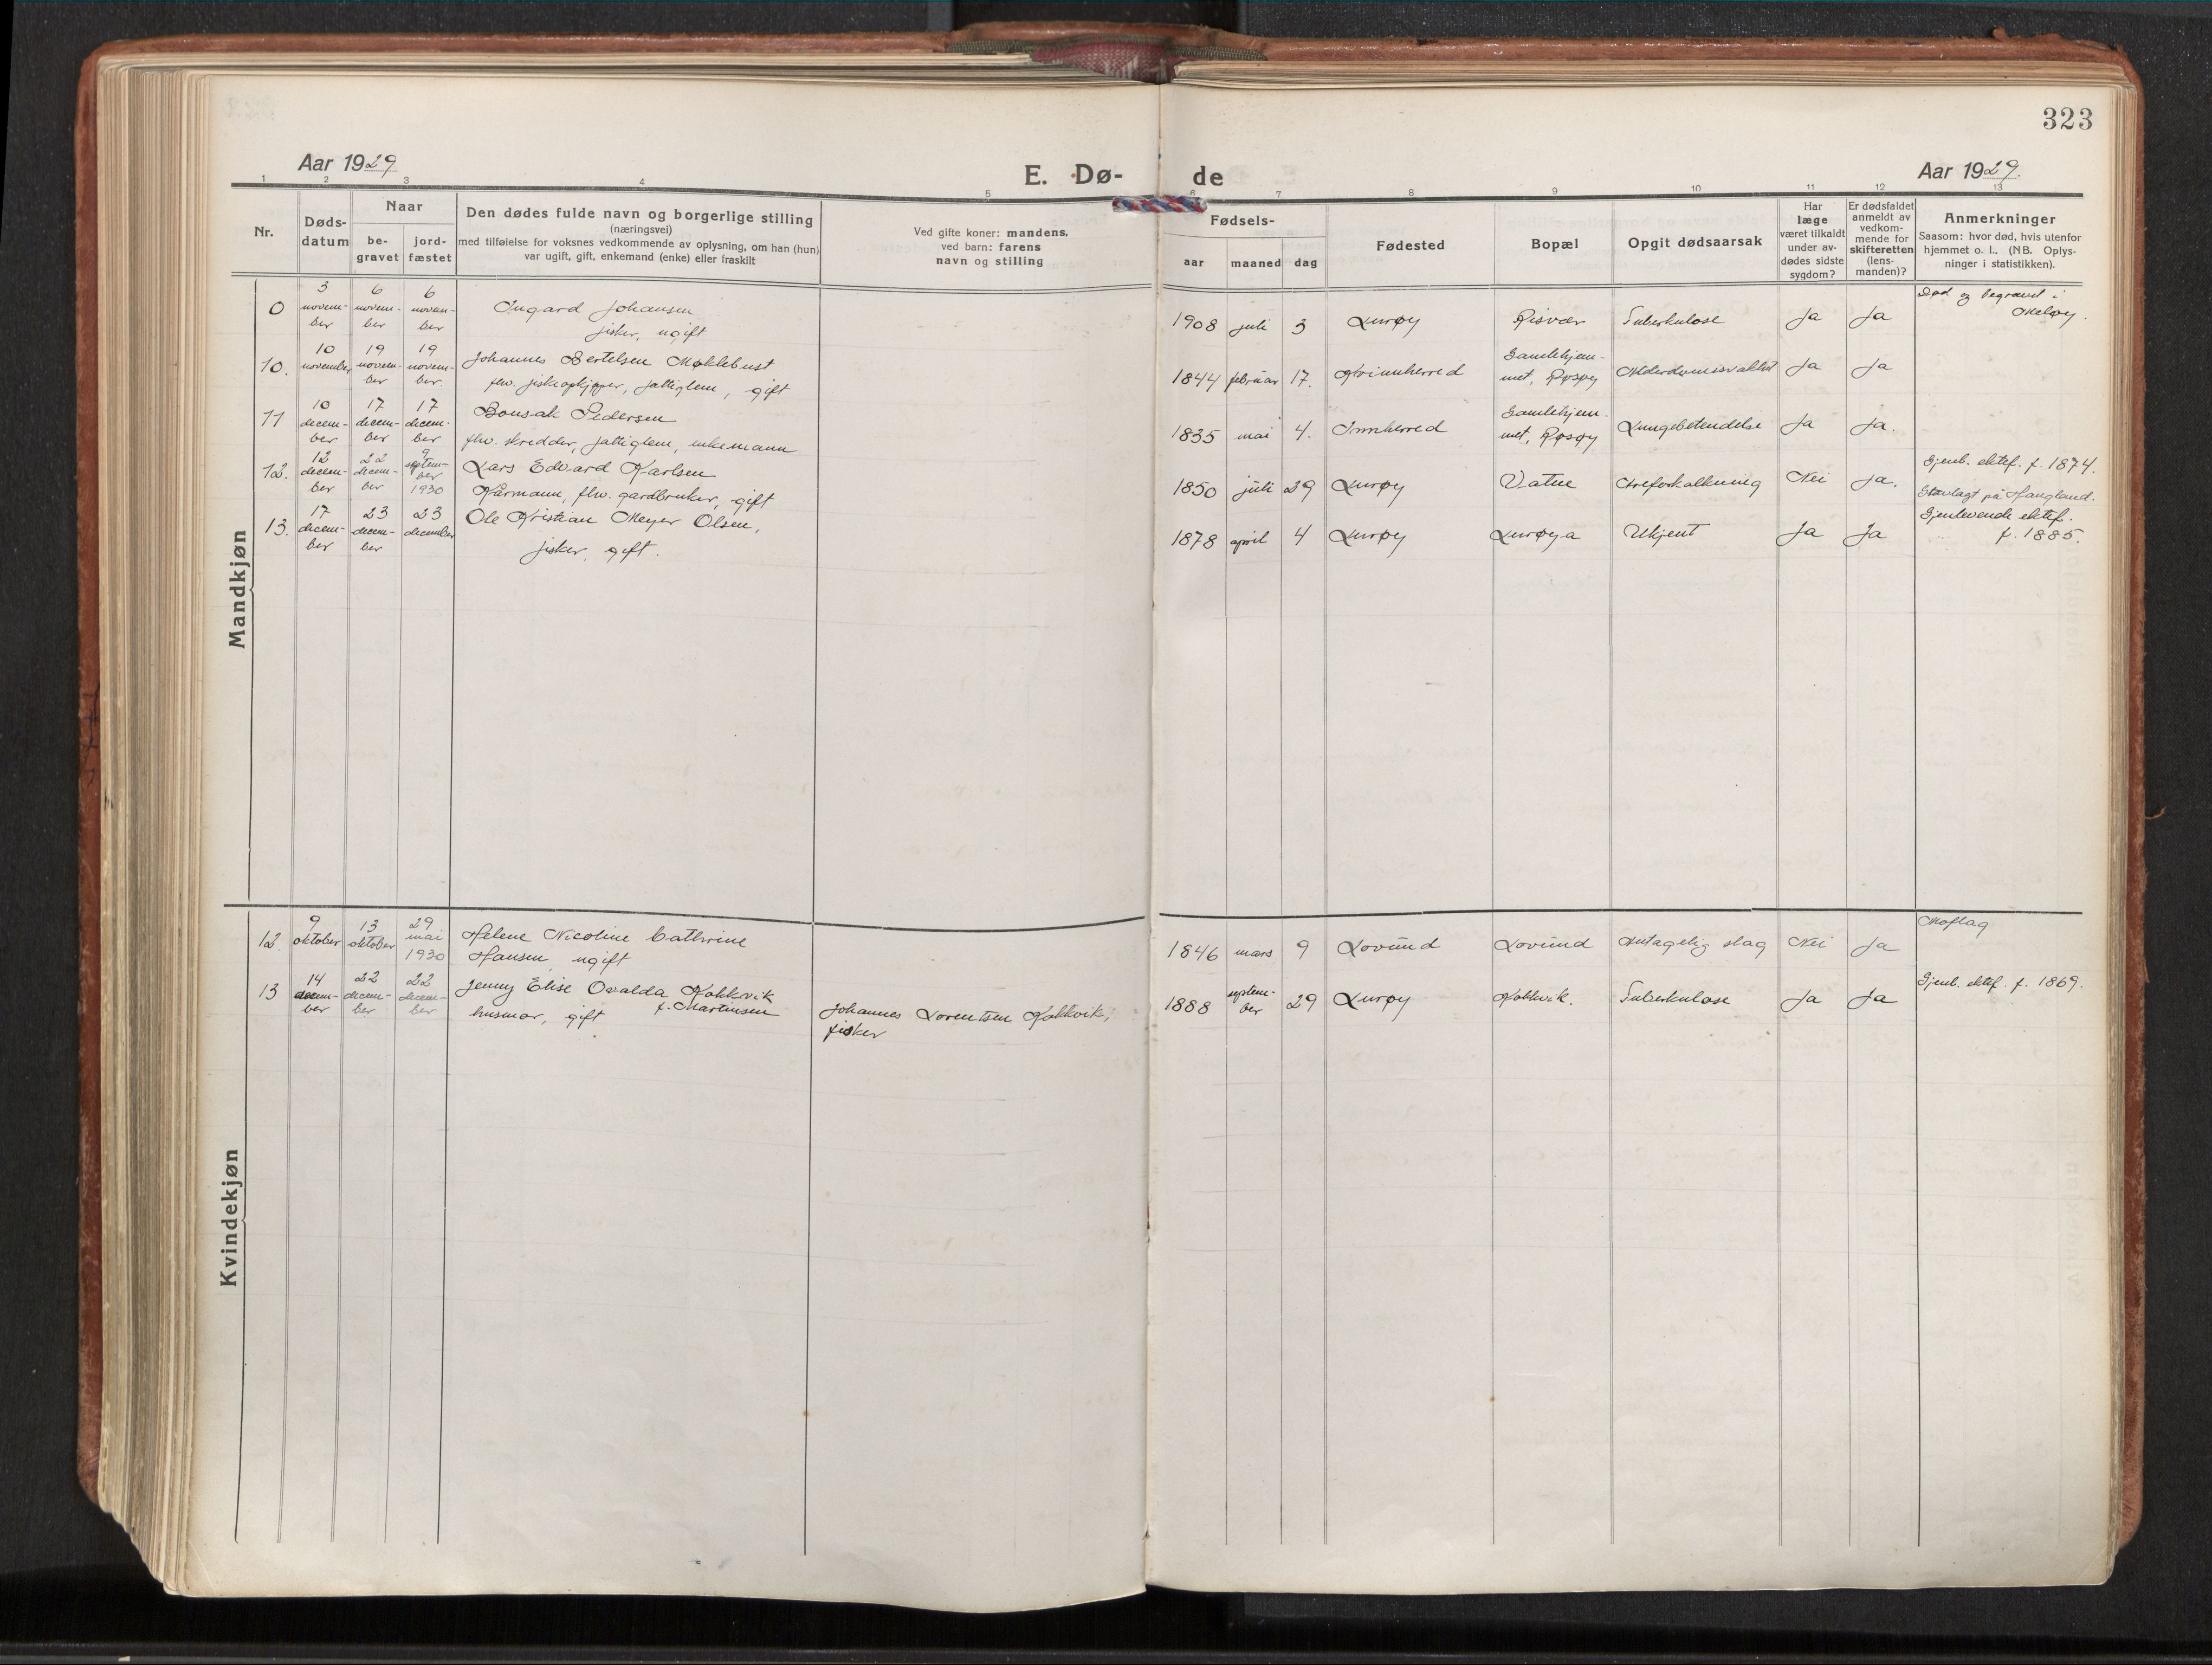 323
Aar 1929
E. Dø- de
Aar 1929.
1 2 3 4 5 6 7 8 9 10 11 12 13
Nr.
Døds-
datum
Naar
be-
gravet
jord-
fæstet
Den dødes fulde navn og borgerlige stilling
(næringsvei)
med tilføielse for voksnes vedkommende av oplysning, om han (hun)
var ugift, gift, enkemand (enke) eller fraskilt
Ved gifte koner: mandens,
ved barn: farens
navn og stilling
Fødsels-
aar maaned dag
Fødested
Bopæl
Opgit dødsaarsak
Har
læge
været tilkaldt
under av-
dødes sidste
sygdom?
Er dødsfaldet
anmeldt av
vedkom-
mende for
skifteretten
(lens-
manden)?
Anmerkninger
Saasom: hvor død, hvis utenfor
hjemmet o. l.. (NB. Oplys-
ninger i statistikken).
Mandkjøn
0
3
novem-
ber
6
novem-
ber
6
novem-
ber
Ingard Johansen
fisker, ugift
1908 juli 3 Lurøy Risvær Tuberkulose Ja Ja
Død og begravet i
Meløy.
10.
10
november
19
novem-
ber
19
novem-
ber.
Johannes Bertelsen Møklebust
flv. fiskeopkjøper, fattiglem, gift
1844 februar 17. Kvinnherred
Gamlehjem-
met, Rosøy
Alderdomssvakhet Ja Ja
11
10
decem-
ber
17
decem-
ber
17
decem-
ber
Bonsak Pedersen
flv. skredder, fattiglem, enkemann
1835 mai 4. Innherred
Gamlehjem-
met, Rosøy
Lungebetendelse Ja Ja.
12.
12
decem-
ber
22
decem-
ber
9
septem-
ber
1930
Lars Edvard Karlsen
Kårmann, flv. gardbruker, gift
1850 juli 29 Lurøy Vatne Areforkalkning Nei Ja.
Gjenl. ektef. f. 1874.
på Haugland.
13.
17
decem-
ber
23
decem-
ber
23
december
Ole Kristian Meyer Olsen,
fisker, gift.
1878 april 4 Lurøy Lurøya Ukjent Ja Ja
Gjenlevende ektef.
f. 1885.
Kvindekjøn
12.
9
oktober
13
oktober
29
mai
1930
Helene Nicoline Cathrine
Hansen, ugift
1846 mars 9 Lovund Lovund Antagelig slag Nei Ja
13
14
decem-
ber
22
decem-
ber
22
decem-
ber
Jenny Elise Ovalda Kokkvik
husmor, gift f. Martinsen
Johannes Lorentsen Kokkvik,
fisker
1888
septem-
ber
29 Lurøy Kokkvik. Tuberkulose Ja Ja
Gjenl. ektef. f. 1869.